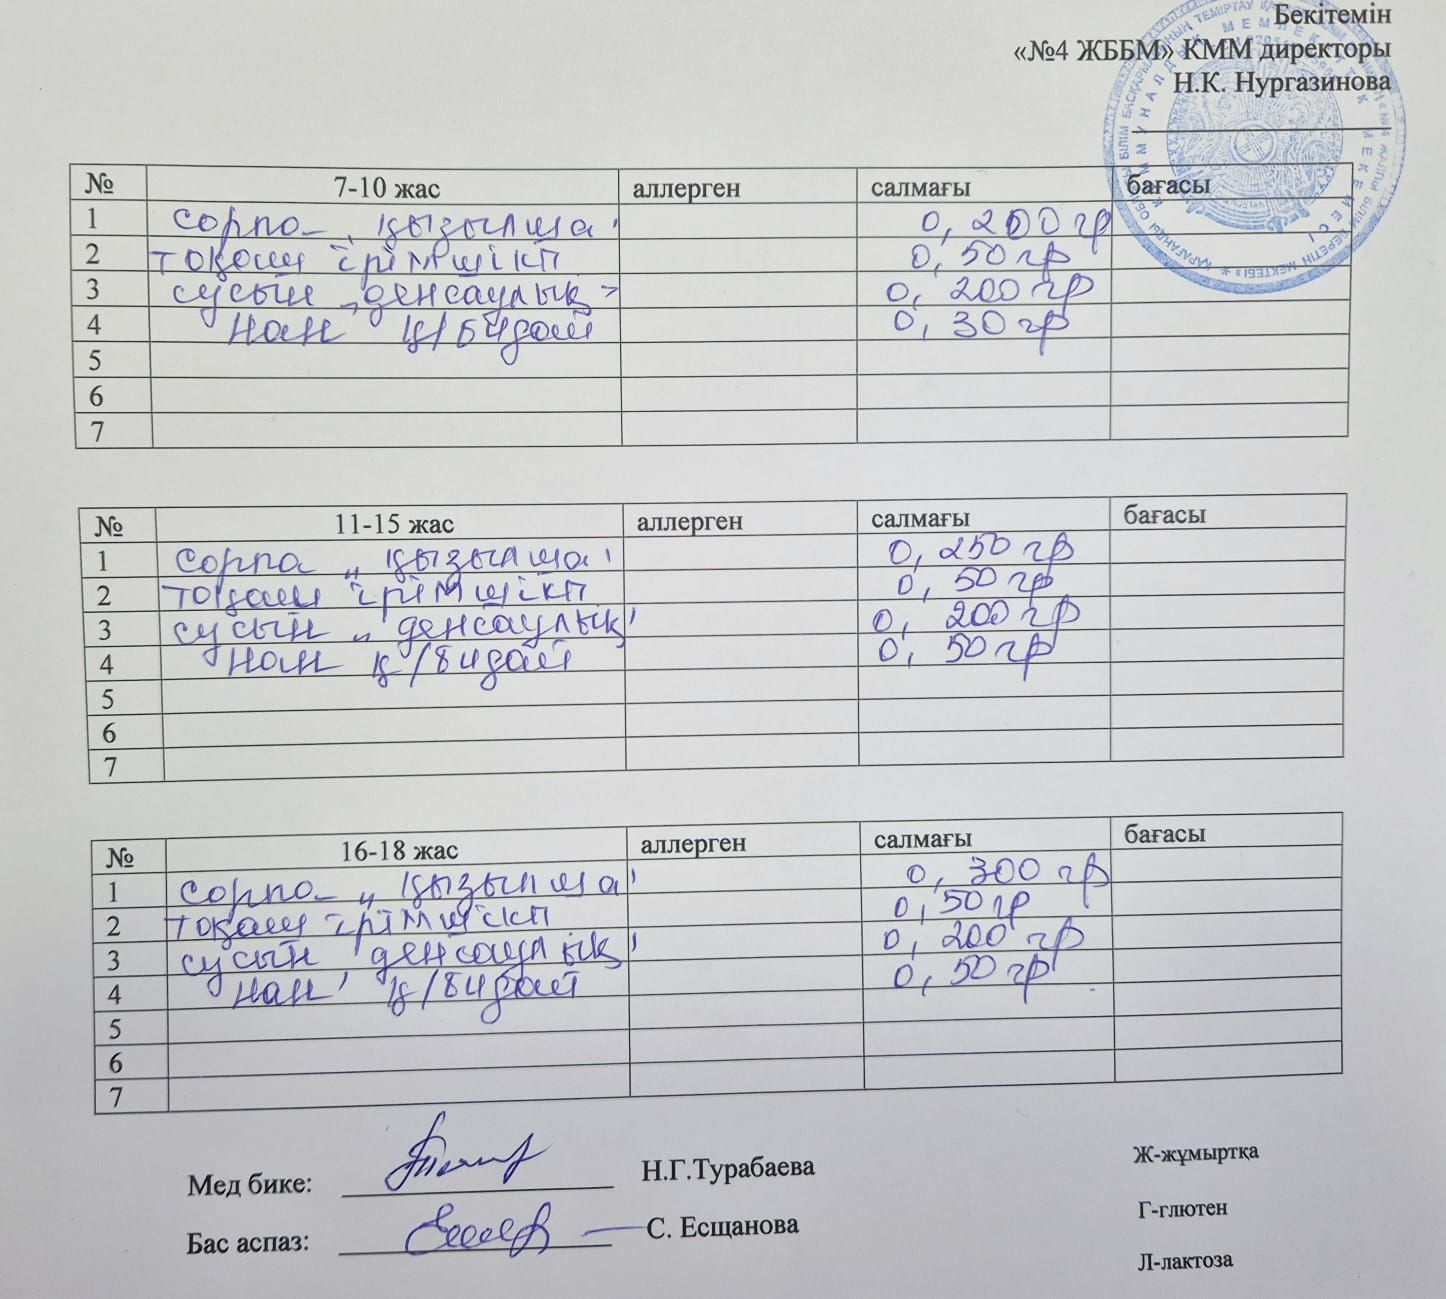 Бекітемін
«№4 ЖББМ» КММ директоры
Н.К. Нургазинова
№ 7-10 жас аллерген салмағы бағасы
1 сорпа „ қызылша' 0, 200 гр
2 тоқаш ірімшікп 0, 50 гр
3 сусын „денсаулық" 0, 200 гр
4 нан қ/бидай 0, 30 гр
5
6
7
№ 11-15 жас аллерген салмағы бағасы
1 сорпа „ қызылша' 0, 250 гр
2 тоқаш ірімшікп 0, 50 гр
3 сусын „ денсаулық' 0, 200 гр
4 нан қ/бидай 0, 50 гр
5
6
7
№ 16-18 жас аллерген салмағы бағасы
1 сорпа „ қызылша' 0, 300 гр
2 тоқаш ірімшікп 0, 50 гр
3 сусын денсаулық' 0, 200 гр
4 нан' қ/бидай 0, 50 гр
5
6
7
Мед бике: Н.Г.Турабаева
Бас аспаз: С. Есщанова
Ж-жұмыртқа
Г-глютен
Л-лактоза